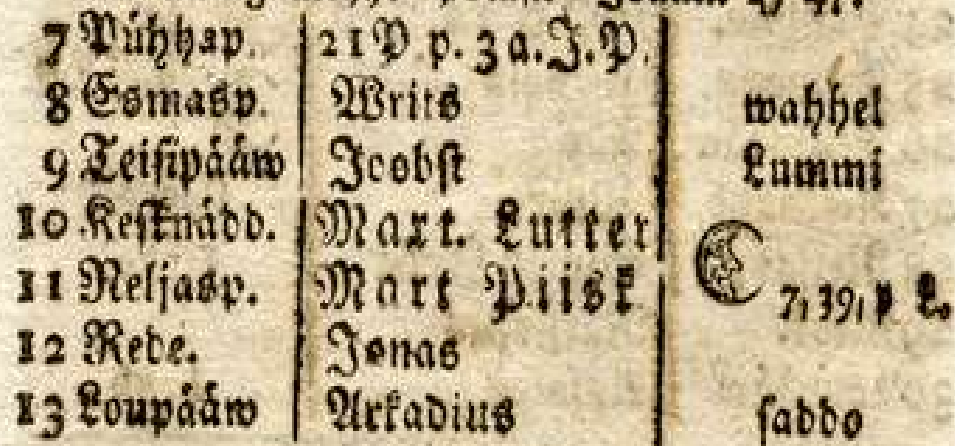 7 Pühhap. 21 P p. 3 a. J. P.
8 Esmasp. Writs wahhel
9 Teisipääw Joobst Lummi
10 Kesknädd. Mart. Lutter
11 Neljasp. Mart Piisk 7, 39, p L.
12 Rede. Jonas
13 Loupääw Arkadius saddo